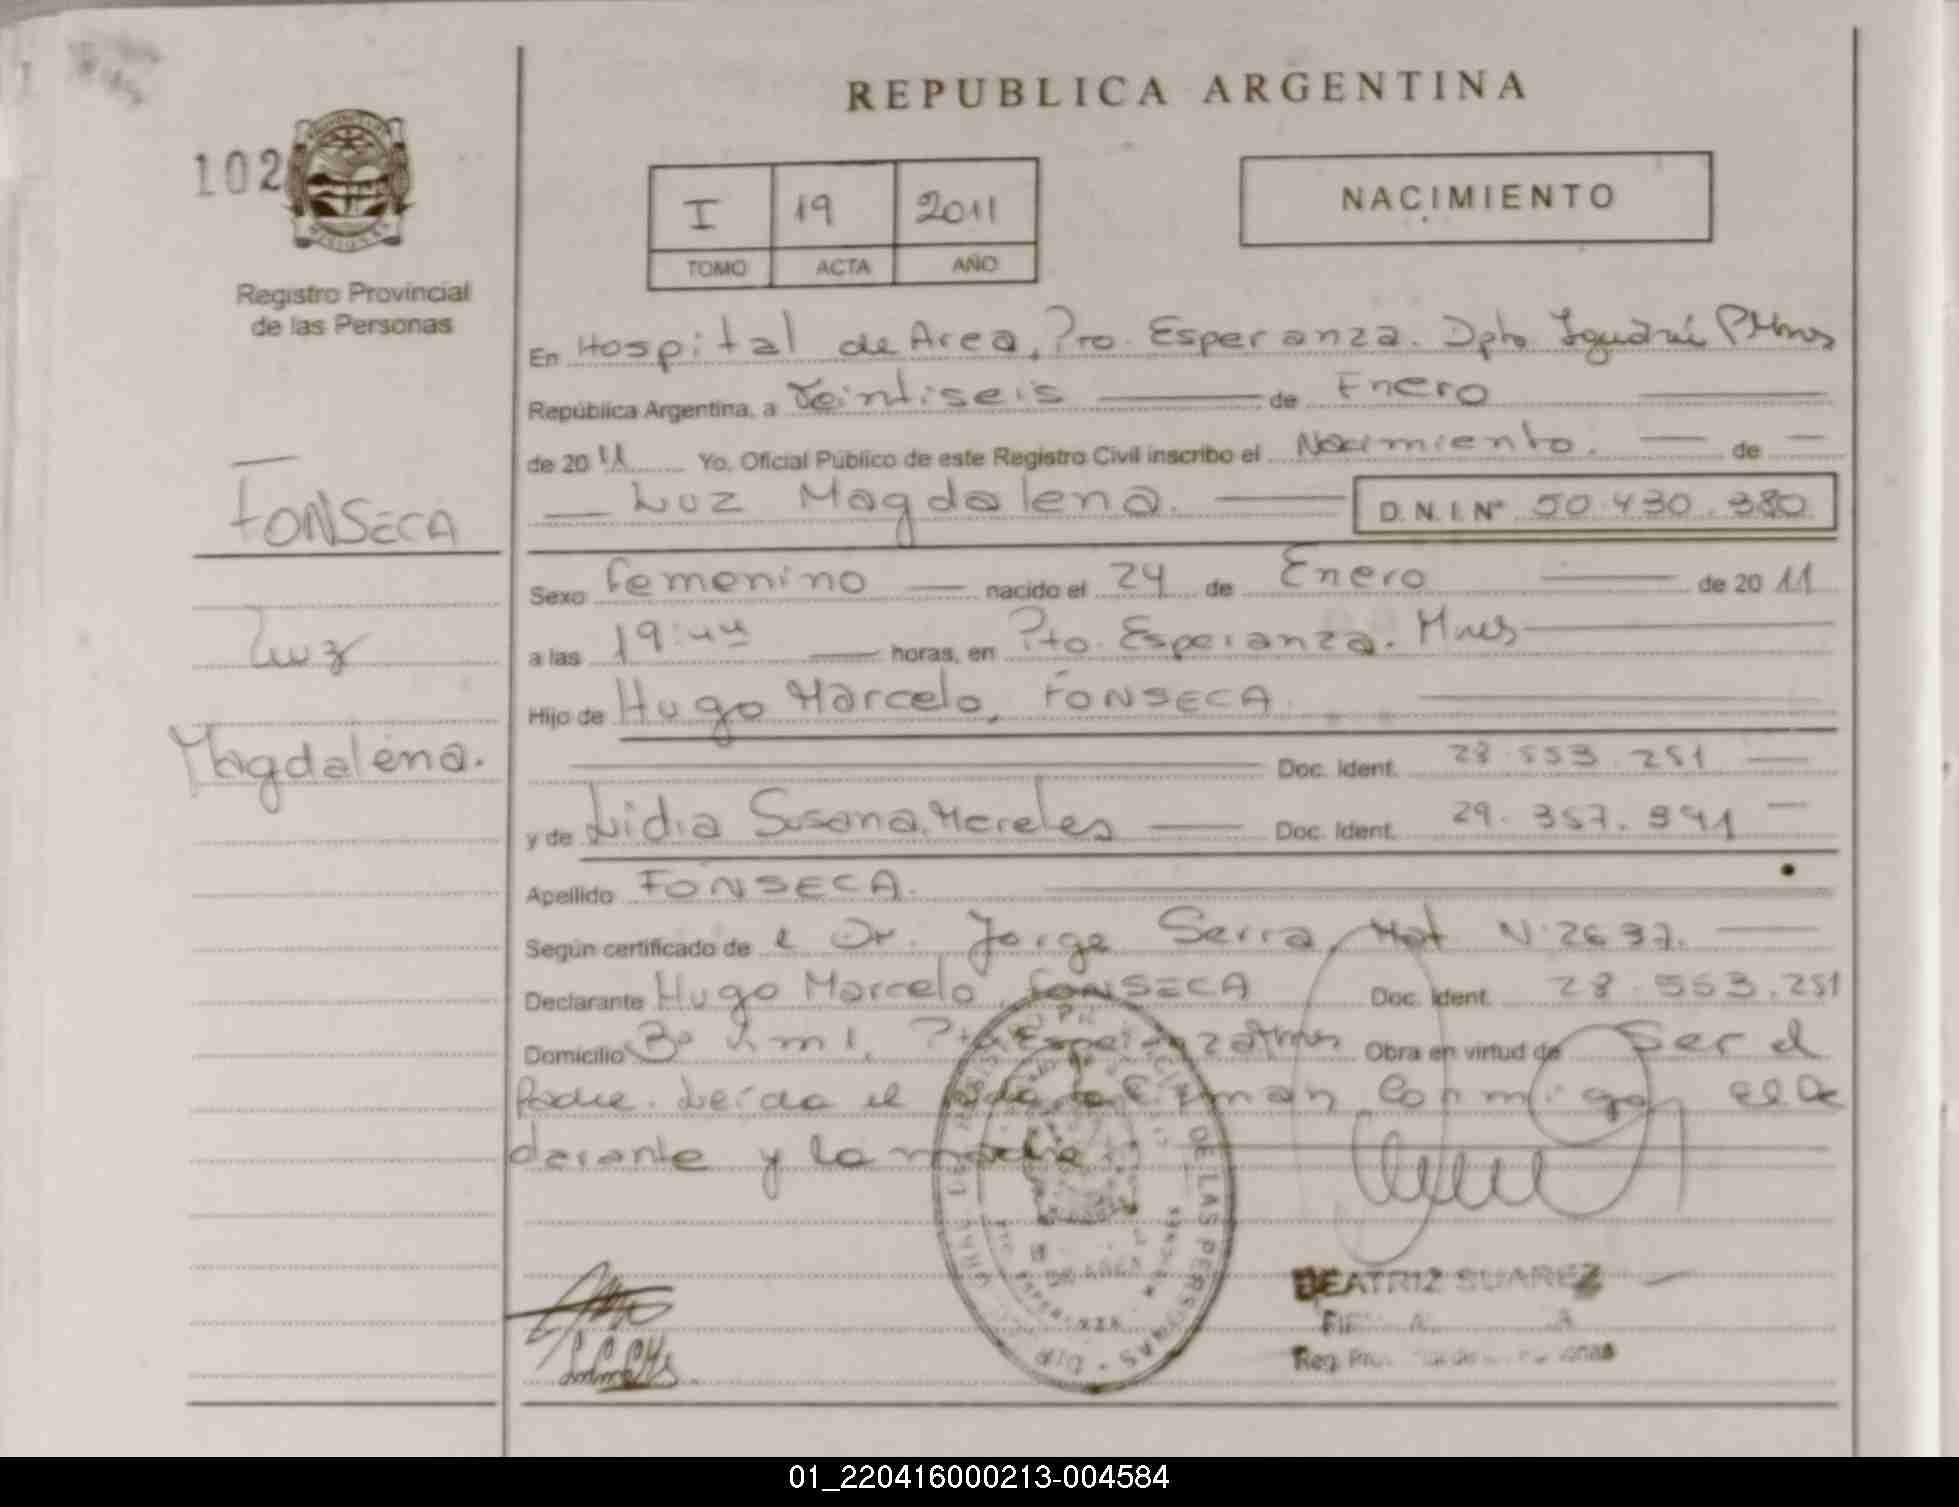 REPUBLICA ARGENTINA
102
I 19 2011
TOMO ACTA AÑO
NACIMIENTO
Registro Provincial
de las Personas
En Hospital de Area, Pto. Esperanza. Dpto Iguazú Mnes
República Argentina, a Veintiseis de Enero
de 2011 Yo, Oficial Público de este Registro Civil inscribo el Nacimiento. de
Luz Magdalena. D. N. I. Nº 50.430.380
FONSECA
Luz
Magdalena.
Sexo Femenino nacido el 24 de Enero de 2011
a las 19:44 horas, en Pto. Esperanza. Mnes
Hijo de Hugo Marcelo, FONSECA.
Doc. Ident. 28.553.251
y de Lidia Susana, Mereles Doc. Ident. 29.357.941
Apellido FONSECA.
Según certificado de el Dr. Jorge Serra, Mat N. 2637.
Declarante Hugo Marcelo, FONSECA Doc. Ident. 28.553.251
Domicilio Bº Km 1, Pto Esperanza Mnes Obra en virtud de Ser el
Padre. Leída el acta la firman conmigo, el De
clarante y la madre
DE LAS PERSONAS
BEATRIZ SUAREZ
01_220416000213-004584